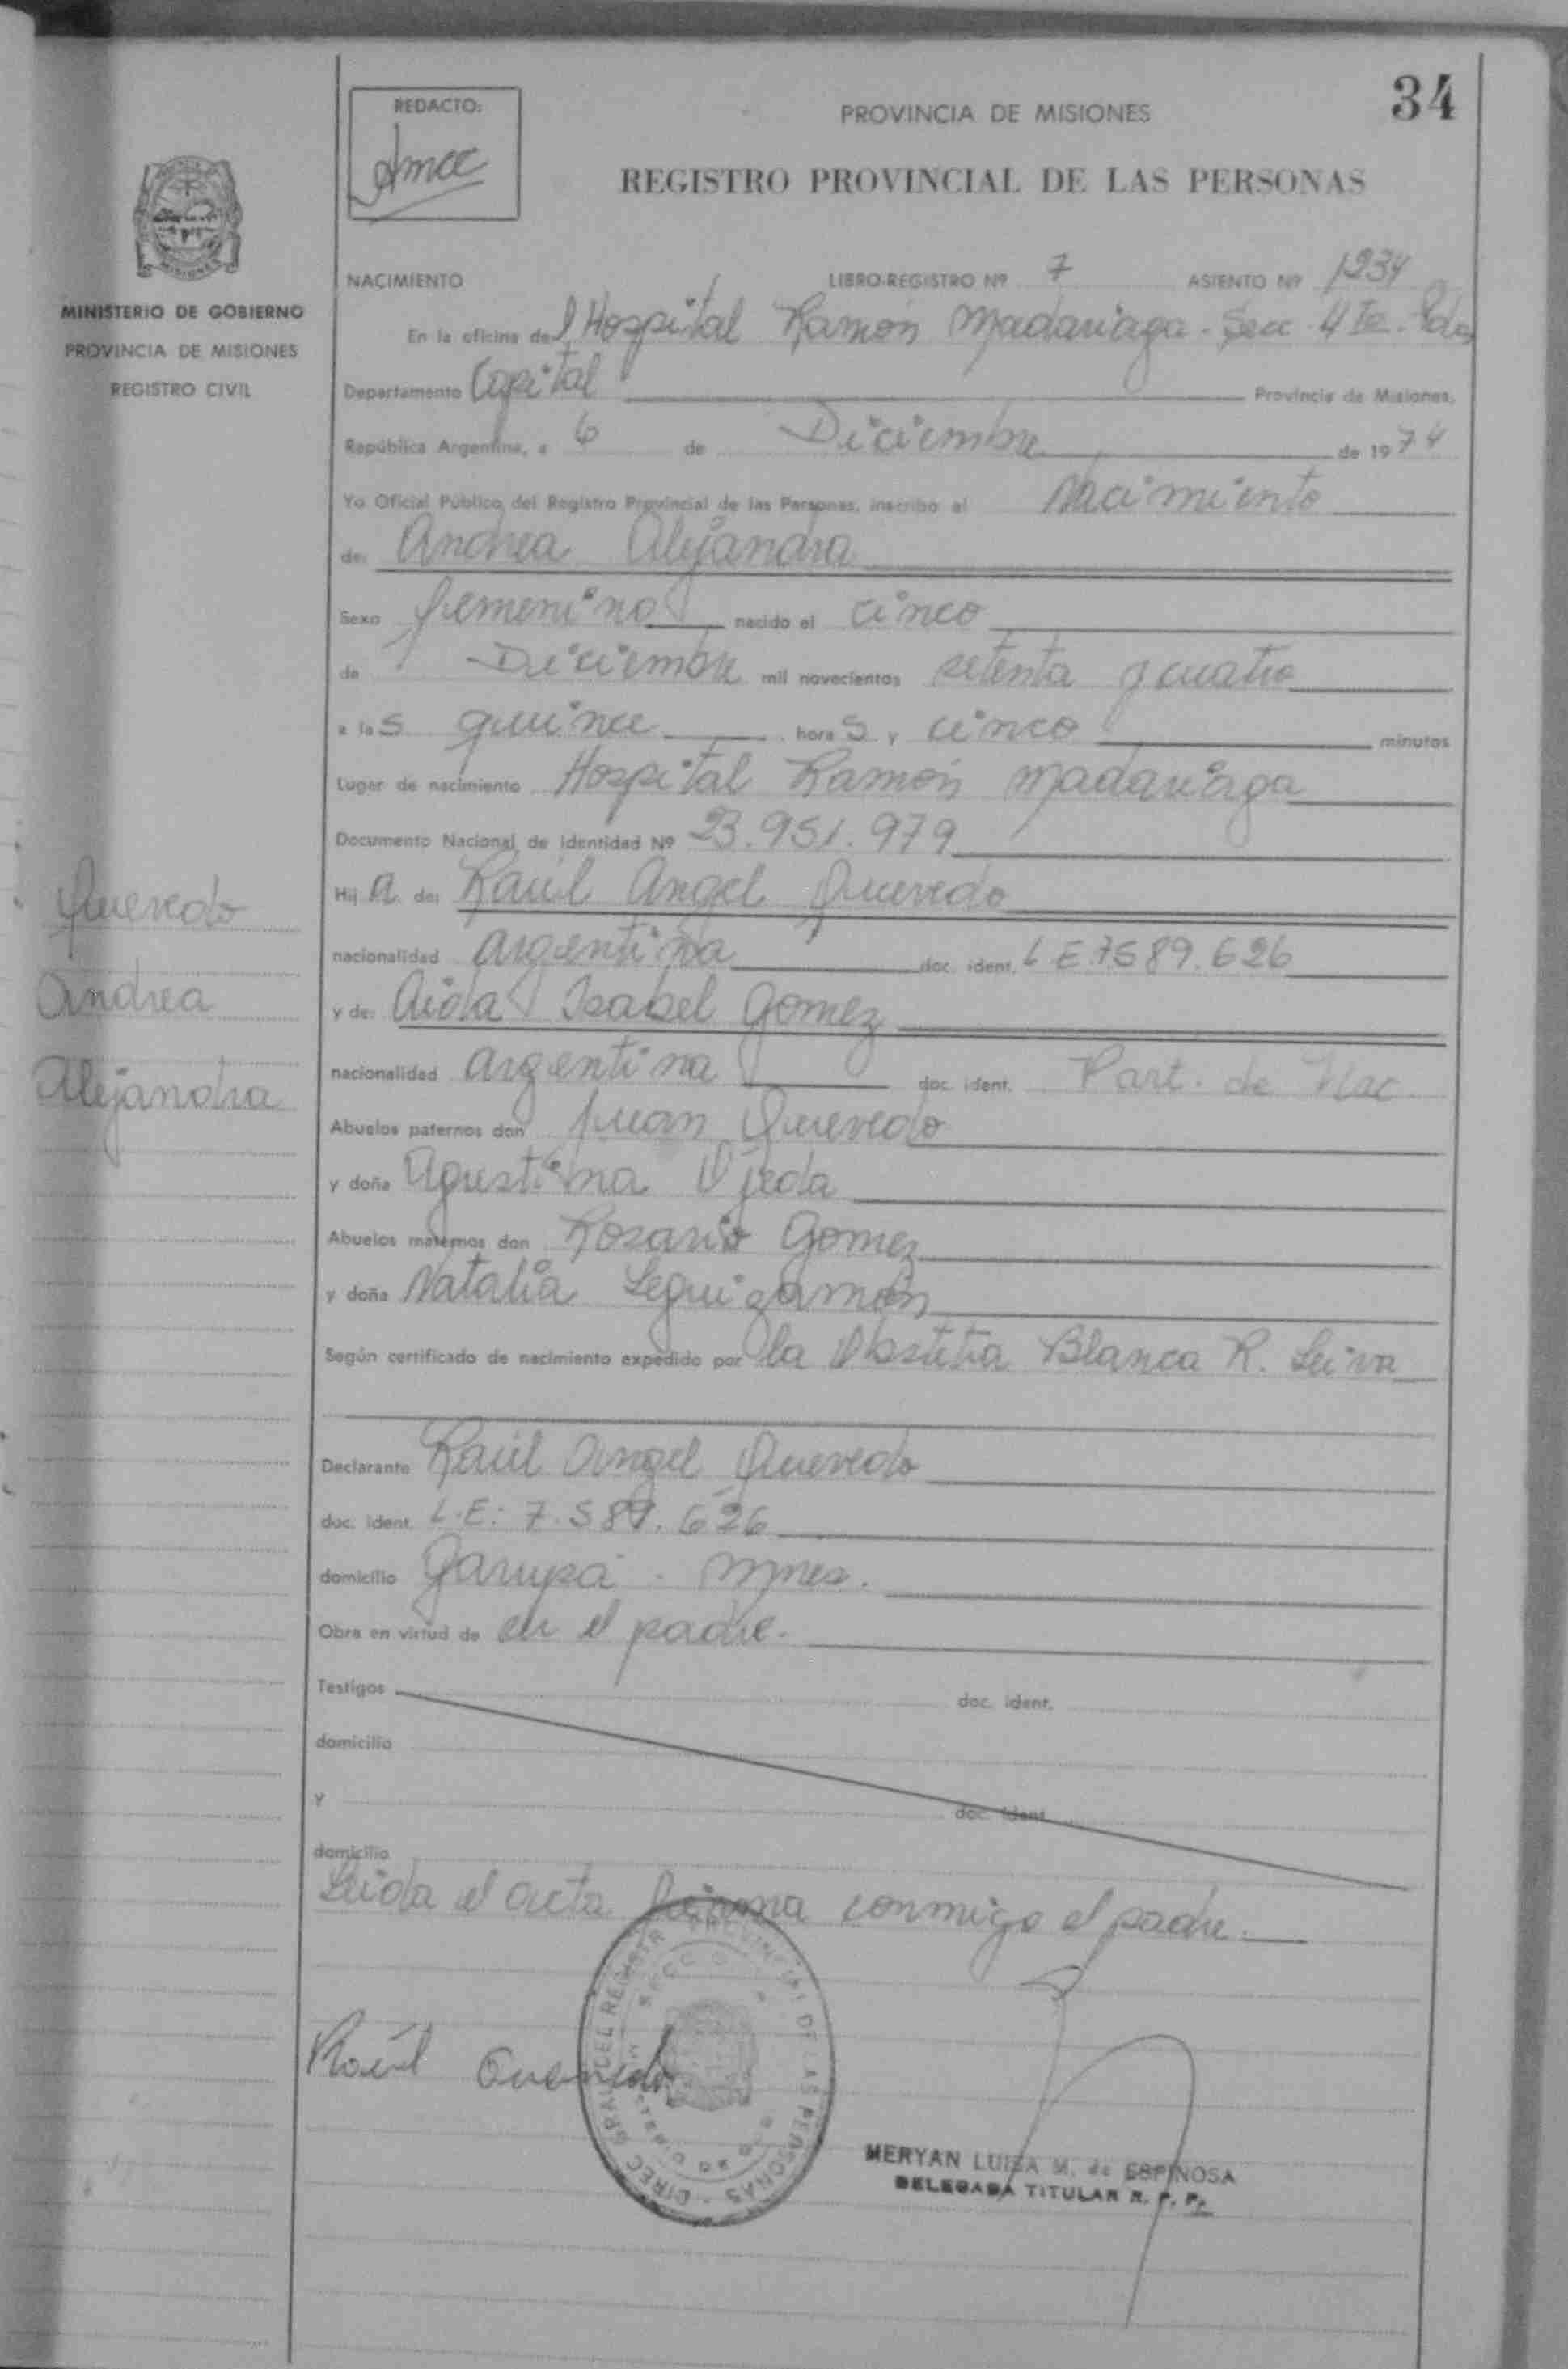 34
REDACTO:
PROVINCIA DE MISIONES
REGISTRO PROVINCIAL DE LAS PERSONAS
MINISTERIO DE GOBIERNO
PROVINCIA DE MISIONES
REGISTRO CIVIL
NACIMIENTO LIBRO-REGISTRO Nº 7 ASIENTO Nº 1234
En la oficina del Hospital Ramón Madariaga - Secc. 4 Te. Pdas
Departamento Capital Provincia de Misiones,
República Argentina, a 6 de Diciembre de 1974
Yo Oficial Público del Registro Provincial de las Personas, inscribo el Nacimiento
de: Andrea Alejandra
Sexo femenino nacido el cinco
de Diciembre mil novecientos setenta y cuatro
a las quince horas y cinco minutos
Lugar de nacimiento Hospital Ramón Madariaga
Documento Nacional de Identidad Nº 23.951.979
Hija de: Raúl Angel Quevedo
nacionalidad argentina doc. ident. L E 7.589.626
y de: Aida Isabel Gomez
nacionalidad argentina doc. ident. Part. de Nac.
Abuelos paternos don Juan Quevedo
y doña Agustina Ojeda
Abuelos maternos don Rosario Gomez
y doña Natalia Leguizamón
Según certificado de nacimiento expedido por la Obstetra Blanca R. Leiva
Declarante Raúl Angel Quevedo
doc. ident. L.E: 7.589.626
domicilio Garupá - Mnes.
Obra en virtud de ser el padre.
Testigos doc. ident.
domicilio
Y doc. ident.
domicilio
Leida el acta firma conmigo el padre.
Quevedo
Andrea
Alejandra
Raúl Quevedo
DIREC GRAL DEL REGISTR PROVINCIAL DE LAS PERSONAS
MERYAN LUISA M. de ESPINOSA
DELEGADA TITULAR R. P. P.